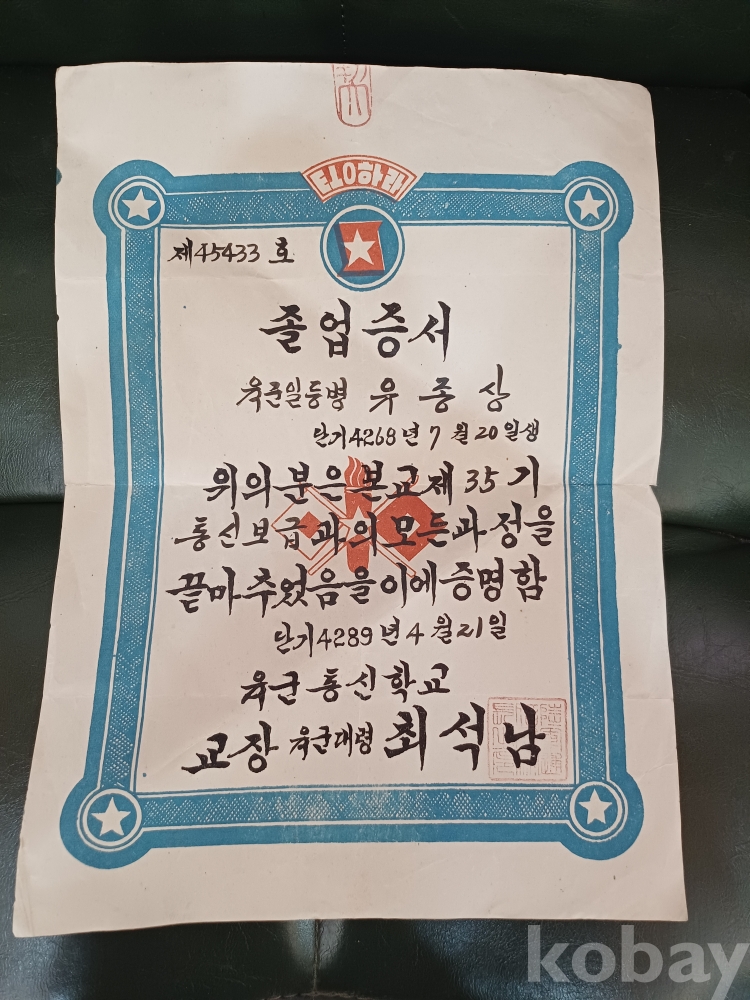 하라
제45433 호
졸업증서
육군일등병 유종상
단기4268년 7월 20일생
위의분은본교제 35 기
통신보급과의모든과정을
끝마추었음을이에증명함
단기4289년 4월21일
육군통신학교
교장 육군대령 최석남
kobay